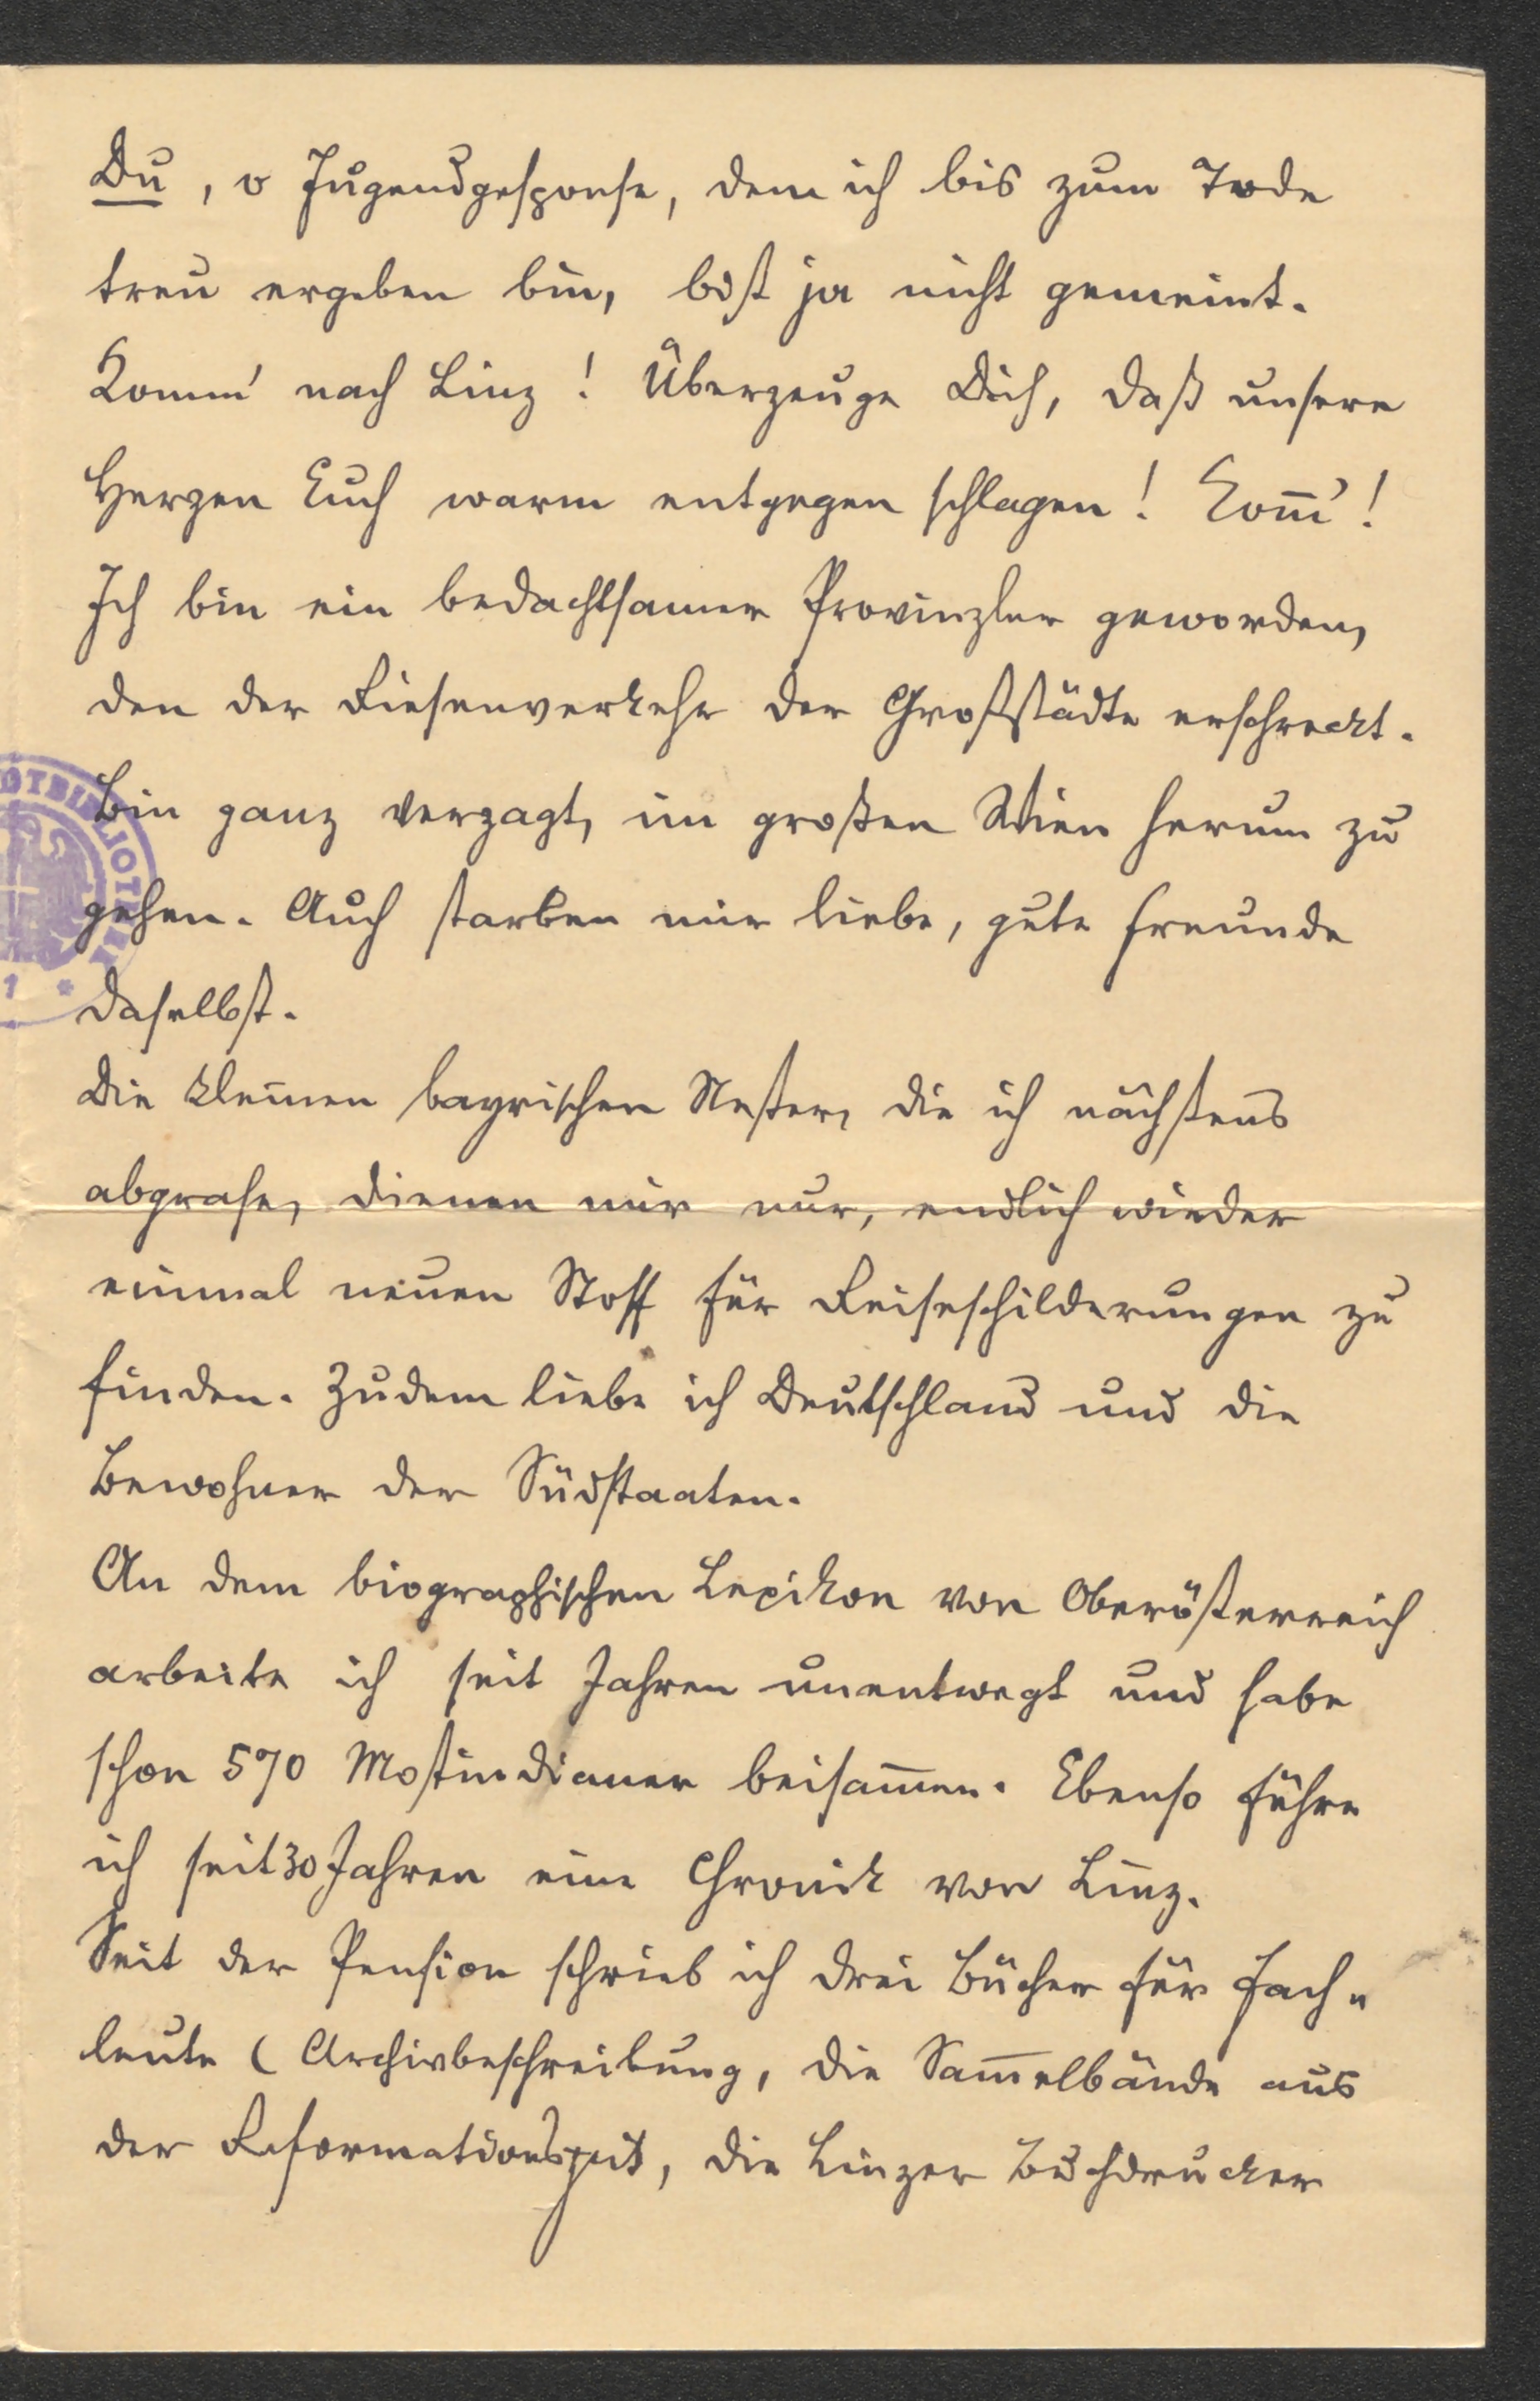 Du, o Jugendgesponse, dem ich bis zum Tode
treu ergeben bin, bist ja nicht gemeint.
Komm' nach Linz! Überzeuge Dich, daß unsere
Herzen Euch warm entgegen schlagen! Kom̄'!
Ich bin ein bedachtsamer Provinzler geworden,
den der Riesenverkehr der Großstädte erschreckt.
Bin ganz verzagt, im großen Wien herum zu
gehen. Auch starben mir liebe, gute Freunde
daselbst.
Die kleinen bayrischen Nester, die ich nächstens
abgrase, dienen mir nur, endlich wieder
einmal neuen Stoff für Reiseschilderungen zu
finden. Zudem liebe ich Deutschland und die
Bewohner der Südstaaten.
An dem biographischen Lexikon von Oberösterreich
arbeite ich seit Jahren unentwegt und habe
schon 570 Mostindianer beisam̄en. Ebenso führe
ich seit 30 Jahren eine Chronik von Linz.
Seit der Pension schrieb ich drei Bücher für Fach-
leute (Archivbeschreibung, die Sam̄elbände aus
der Reformationszeit, die Linzer Buchdrucker